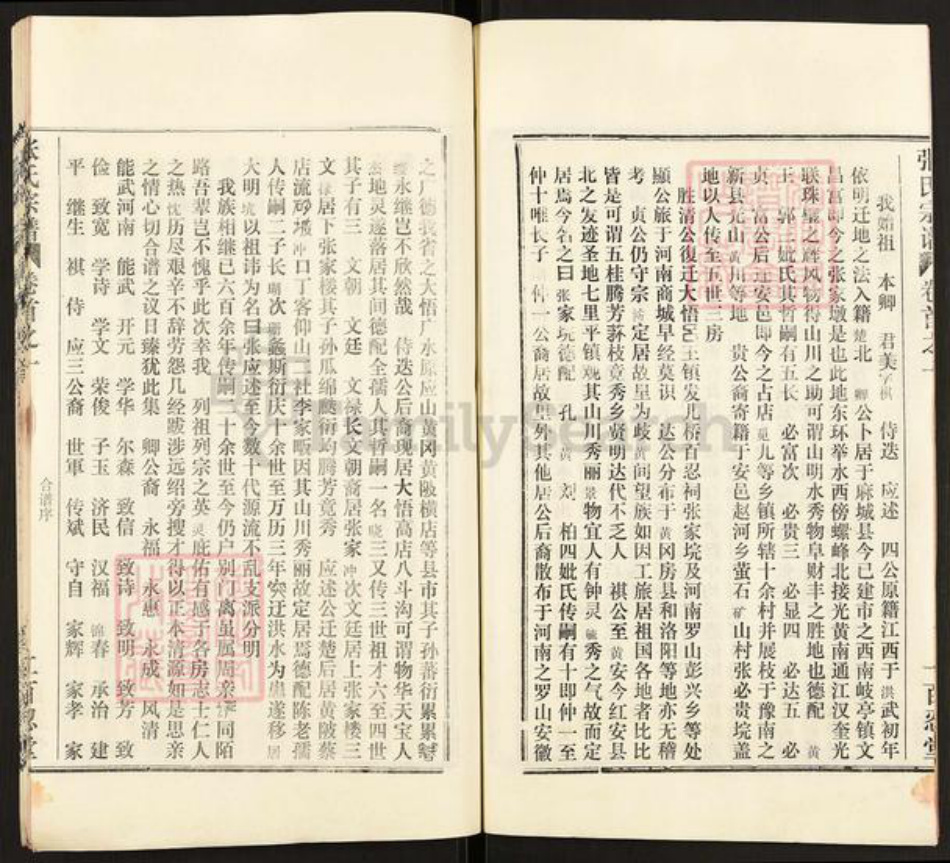 张氏宗谱 卷首之一 百忍堂
我始祖 本卿 君美字祺 侍迭 应述 四公原籍江西于洪武初年
依明迁地之法入籍楚北 卿公卜居于麻城县今已建市之西南岐亭镇文
昌富即今之张家墩是也此地东环举水西傍螺峰北接光黄南通江汉奎光
联珠璧之辉风物得山川之助可谓山明水秀物阜财丰之胜地也德配 黄
王 郭三妣氏其哲嗣有五长 必富次 必贵三 必显四 必达五 必
贞 富公后迁安邑即今之古店觅儿等乡镇所辖十余村并展枝于豫南之
新县光山黄川等地 贵公裔寄籍于安邑赵河乡萤石矿山村张必贵垸盖
地以人传至五世三房
胜清公復迁大悟吕王镇发儿桥百忍祠张家垸及河南罗山彭兴乡等处
顯公旅于河南商城早经莫识 达公分布于黄冈房县和洛阳等地亦无稽
考 贞公仍守宗 定居故里为歧黄间望族如因工旅居祖国各地者比比
皆是可谓五桂腾芳荪枝竟秀乡贤明达代不乏人 祺公至黄安今红安县
北之发迹圣地七里平镇观其山川秀丽景物宜人有钟灵毓秀之气故而定
居焉今名之曰张家玩德配 孔 黄 刘 柏四妣氏传嗣有十即仲一至
仲十唯长子 仲一公裔居故里外其他居公后裔散布于河南之罗山安徽
之广德我省之大悟广水原应山黄冈黄陂横店等县市其子孙蕃衍累累
永继岂不欣然哉 侍迭公后裔现居大悟高店八斗沟可谓物华天宝人
杰地灵遂落居其间德配全孺人其哲嗣一名晓三又传三世祖才六至四世
其子有三 文朝 文廷 文禄长文朝裔居张家冲次文廷居上张家楼三
文禄居下张家楼其子孙瓜绵瓞衍均腾芳竟秀 应述公迁楚后居黄陂蔡
店流河墩冲口丁家仰山三社李家畈因其山川秀丽故定居焉德配陈老孺
人传嗣二子长瑚次珊螽斯衍庆十余世至万历三年突迁洪水为患遂移居
大明坑以祖讳为名曰张应述至今数十代源流不乱支派分明
我族相继已六百余年传嗣二十余世至今仍户别门离虽属周亲 同陌
路吾辈岂不愧乎此次幸我 列祖列宗之英灵庇佑有感于各房志士仁人
之热忱历尽艰辛不辞劳怨几经跋涉远绍旁搜才得以正本清源如是思亲
之情心切合谱之议日臻犹此集 卿公裔 永福 永惠 永成 风清
能武河南 能武 开元 学华 尔森 致信 致诗 致明 致芳 致
俭 致宽 学诗 学文 荣俊 子玉 济民 汉福 锦春 承治 建
平 继生 祺 侍 应三公裔 世軍 传斌 守自 家辉 家孝 家
合谱序
张氏宗谱 卷首之一 百忍堂
FamilySearch